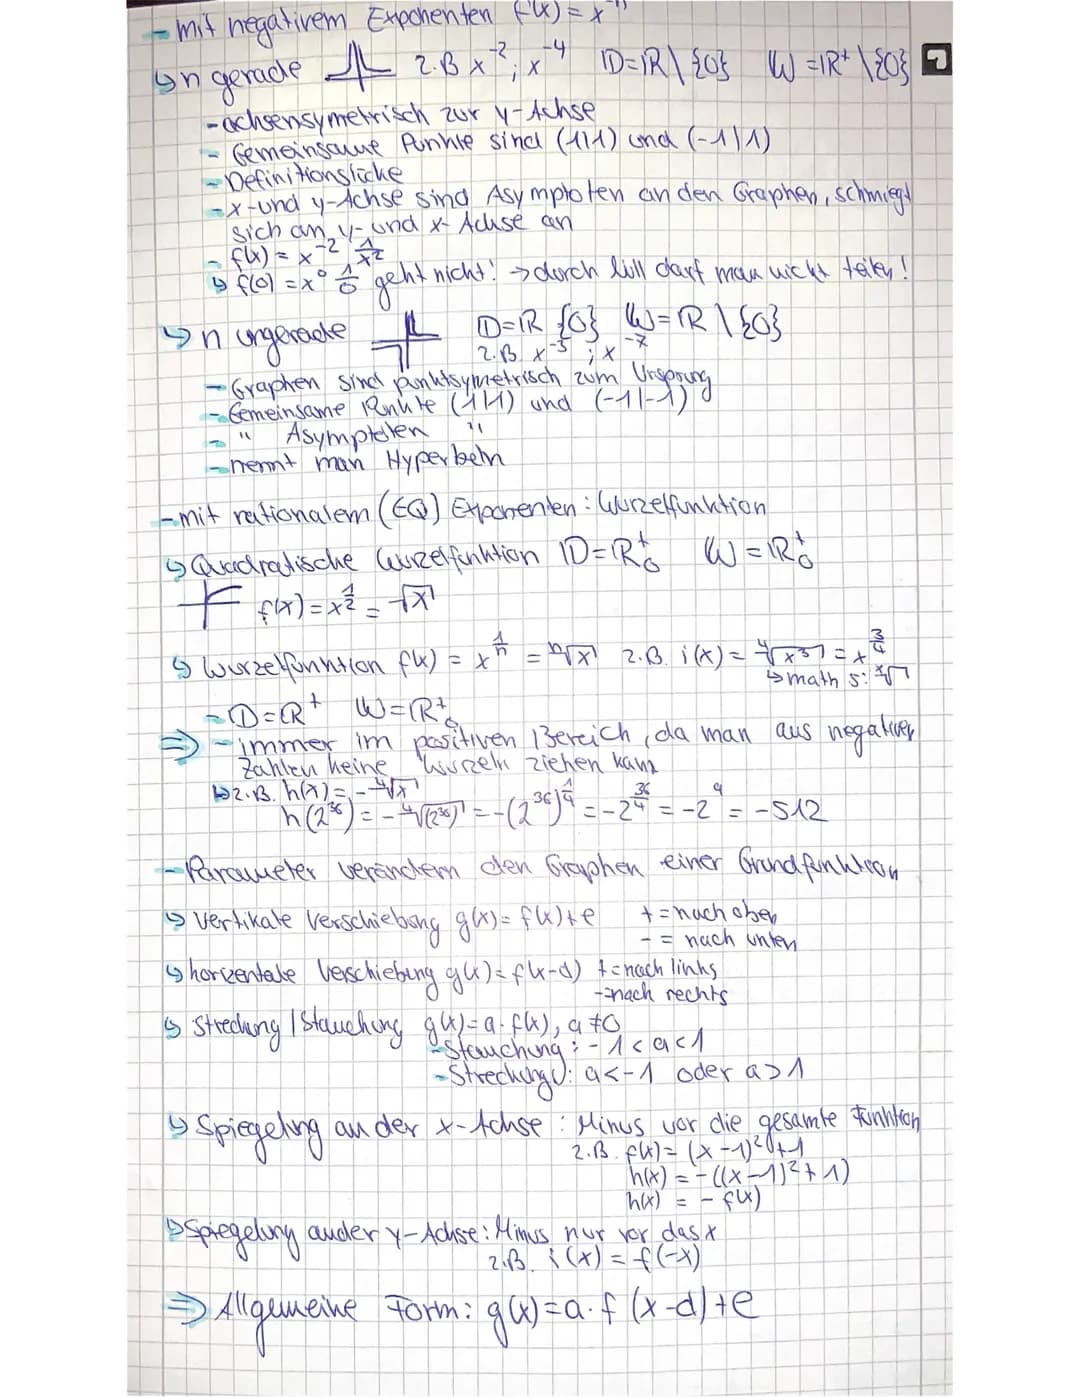 - mit negativem Exponenten f(x) = x⁻ⁿ
↳ n gerade z.B x⁻²; x⁻⁴ D=ℝ\{0} W=ℝ⁺\{0}
- achsensymetrisch zur y-Achse
- Gemeinsame Punkte sind (1|1) und (-1|1)
- Definitionslücke
- x-und y-Achse sind Asymptoten an den Graphen, schmiegt
sich an y- und x-Achse an
- f(x) = x⁻² 1/x²
↳ f(0) = x⁰ 1/0 geht nicht! → durch Null darf man nicht teilen!
↳ n ungerade D=ℝ {0} W=ℝ\{0}
z.B. x⁻⁵; x⁻⁷
- Graphen sind punktsymetrisch zum Ursprung
- Gemeinsame Punkte (1|1) und (-1|-1)
- " Asymptoten "
- nennt man Hyperbeln
- mit rationalem (∈Q) Exponenten: Wurzelfunktion
↳ Quadratische Wurzelfunktion D=ℝ₀⁺ W=ℝ₀⁺
f(x) = x^(1/2) = √x
↳ Wurzelfunktion f(x) = x^(1/n) = ⁿ√x z.B. i(x) = ⁴√x³ = x^(3/4)
↳ math 5: ˣ√
- D=ℝ⁺ W=ℝ₀⁺
⇒ - immer im positiven Bereich, da man aus negativen
Zahlen keine Wurzeln ziehen kann
↳ z.B. h(x) = -⁴√x
h(2³⁶) = -⁴√(2³⁶) = -(2³⁶)^(1/4) = -2^(36/4) = -2⁹ = -512
- Parameter verändern den Graphen einer Grundfunktion
↳ Vertikale Verschiebung g(x) = f(x)+e + = nach oben
- = nach unten
↳ horizentale Verschiebung g(x) = f(x-d) + = nach links
- = nach rechts
↳ Streckung / Stauchung g(x) = a·f(x), a≠0
- Stauchung: -1<a<1
- Streckung: a<-1 oder a>1
↳ Spiegelung an der x-Achse: Minus vor die gesamte Funktion
z.B. f(x) = (x-1)²+1
h(x) = -((x-1)²+1)
h(x) = -f(x)
↳ Spiegelung an der y-Achse: Minus nur vor das x
z.B. i(x) = f(-x)
⇒ Allgemeine Form: g(x) = a·f(x-d)+e